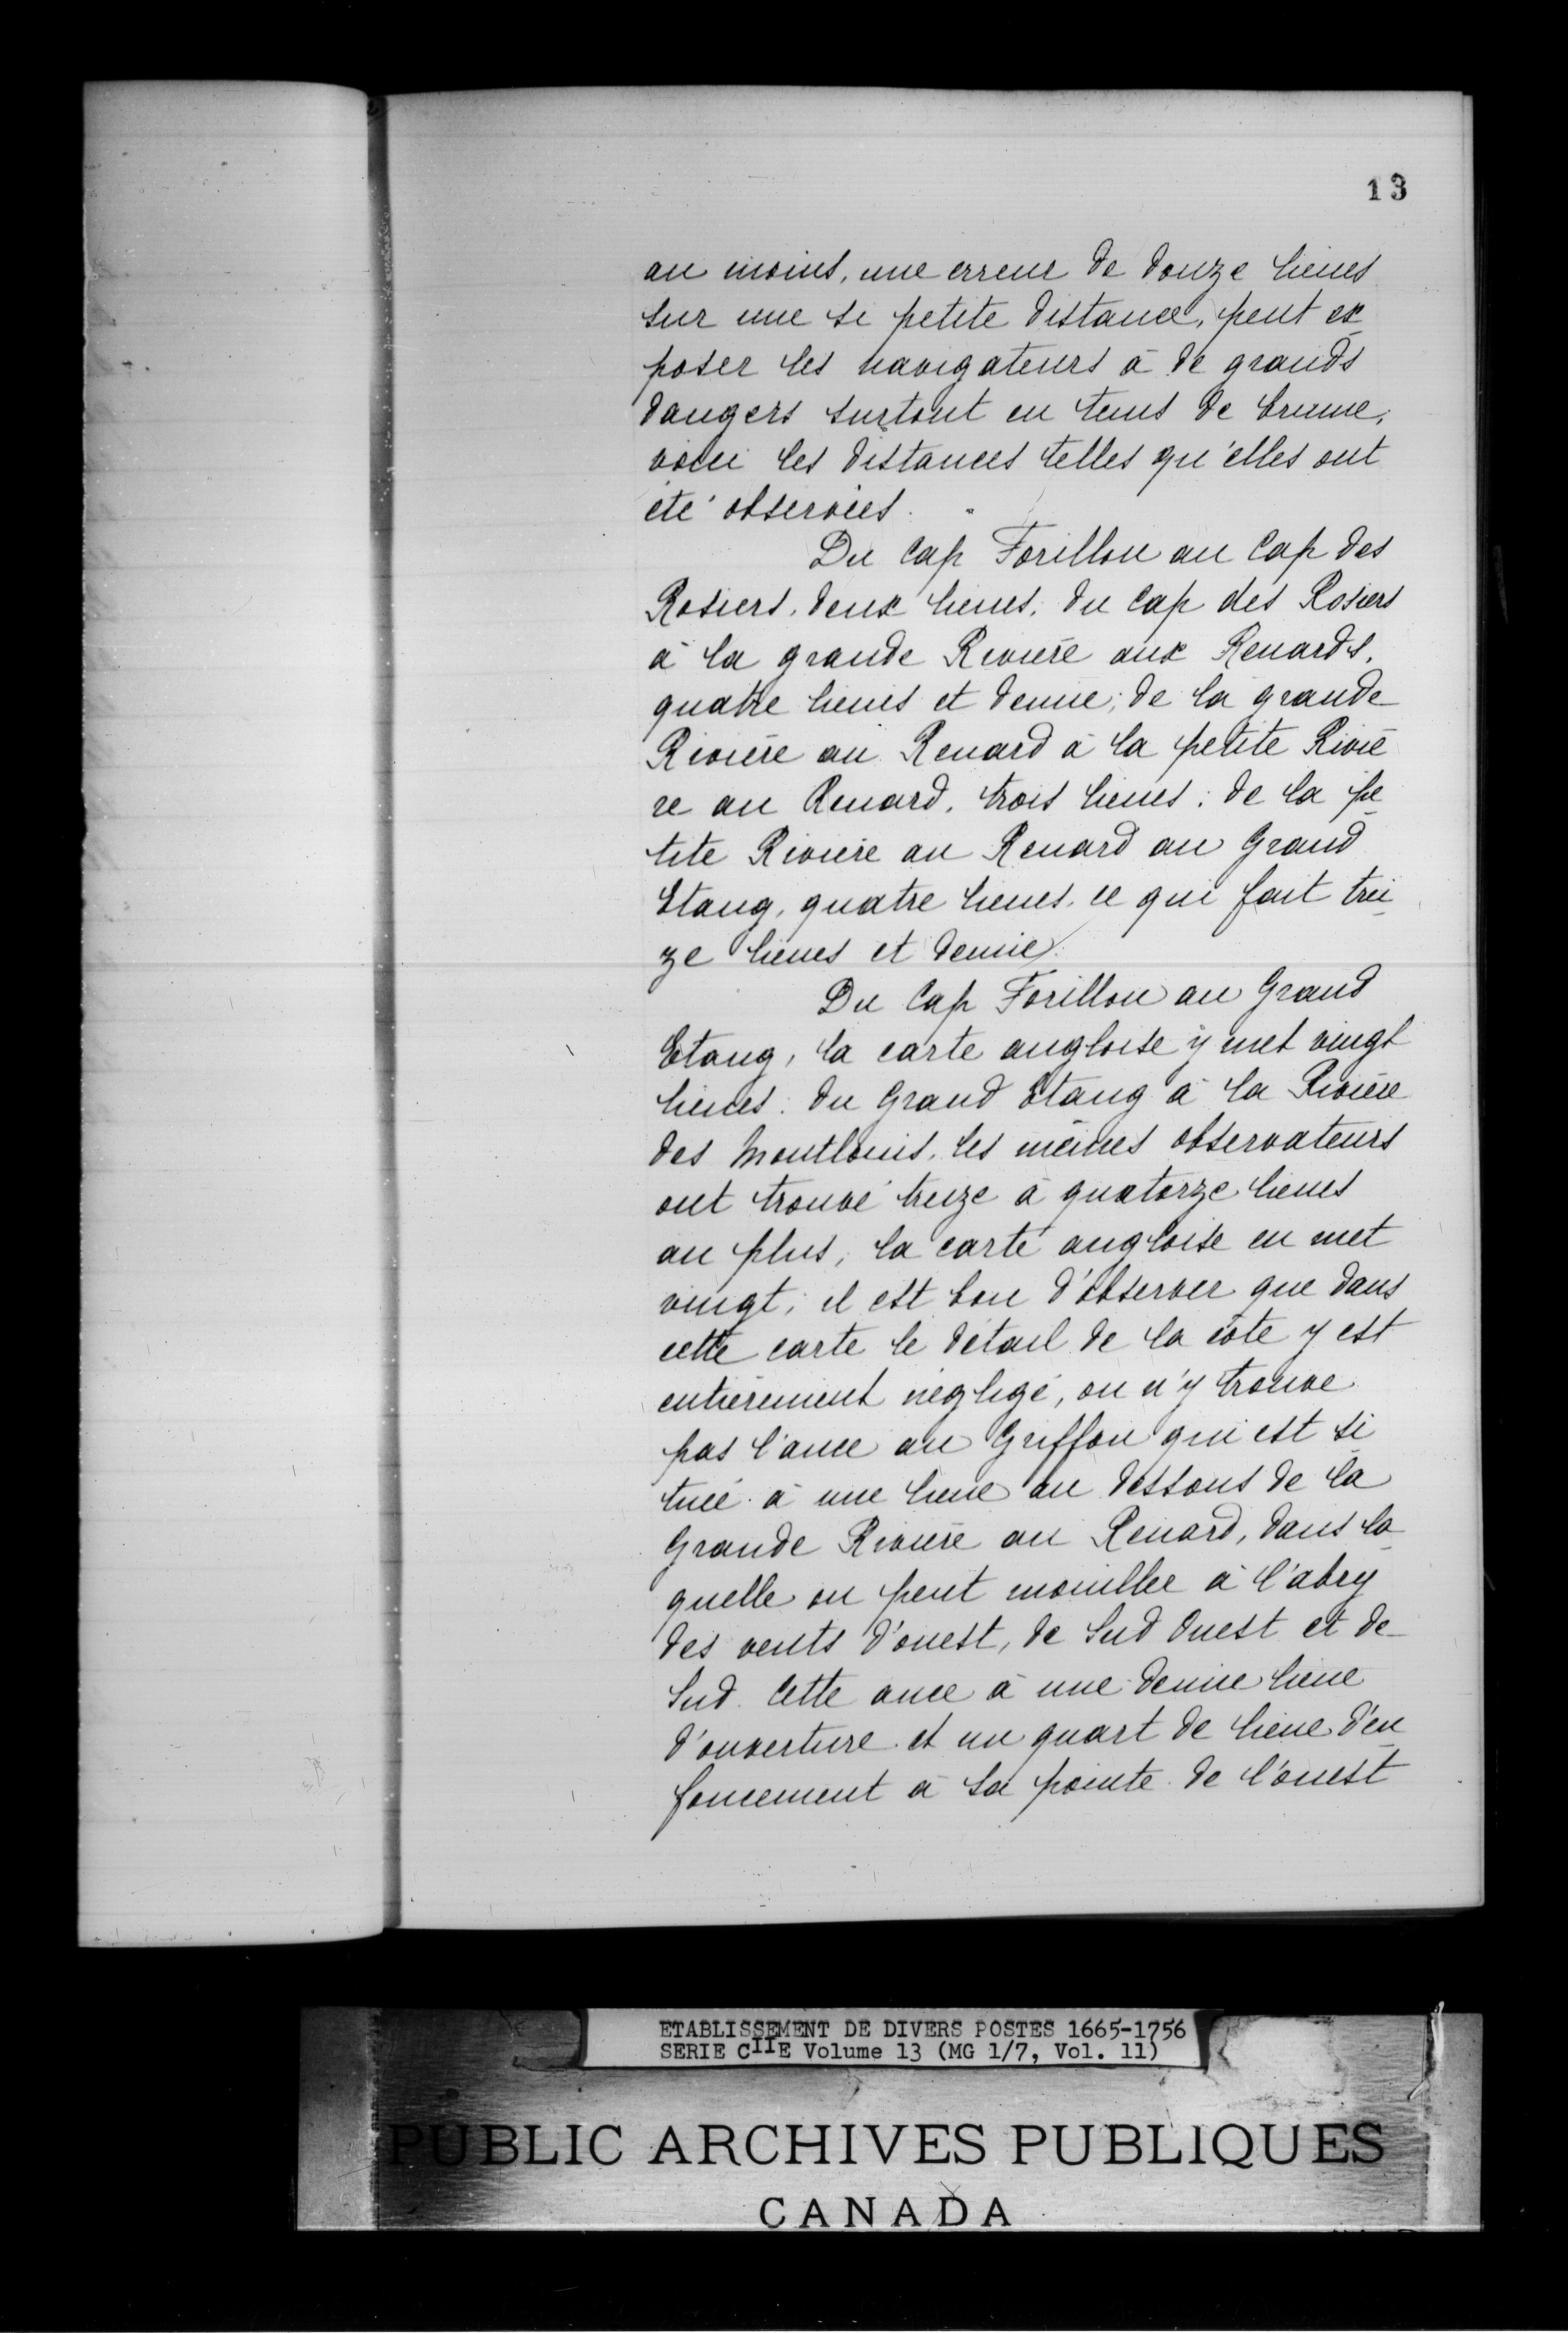 13
au moins, une erreur de douze lieues
sur une si petite distance, peut ex
poser les navigateurs à de grands
dangers surtout en tems de brume,
voici les distances telles qu'elles ont
été observées.
Du Cap Forillon au Cap des
Rosiers, deux lieues, du Cap des Rosiers
à la grande Rivière aux Renards,
quatre lieues et demie; de la grande
Rivière au Renard à la petite Riviè
re au Renard, trois lieues; de la pe
tite Rivière au Renard au Grand
Etang, quatre lieues, ce qui fait trei
ze lieues et demie.
Du Cap Forillon au Grand
Etang, la carte angloise y met vingt
lieues. du Grand Etang à la Rivière
des Montlouis, les mêmes observateurs
ont trouvé treize à quatorze lieues
au plus, la carte angloise en met
vingt; il est bon d'observer que dans
cette carte le détail de la côte y est
entièrement négligé, on n'y trouve
pas l'ance au Griffon qui est si
tuée à une lieue au dessous de la
Grande Rivière au Renard, dans la
quelle on peut mouiller à l'abry
des vents d'ouest, de Sud Ouest et de
Sud. Cette ance à une demie lieue
d'ouverture et un quart de lieue d'en
foncement à sa pointe de l'ouest
ETABLISSEMENT DE DIVERS POSTES 1665-1756
SERIE CIIE Volume 13 (MG 1/7, Vol. 11)
PUBLIC ARCHIVES PUBLIQUES
CANADA